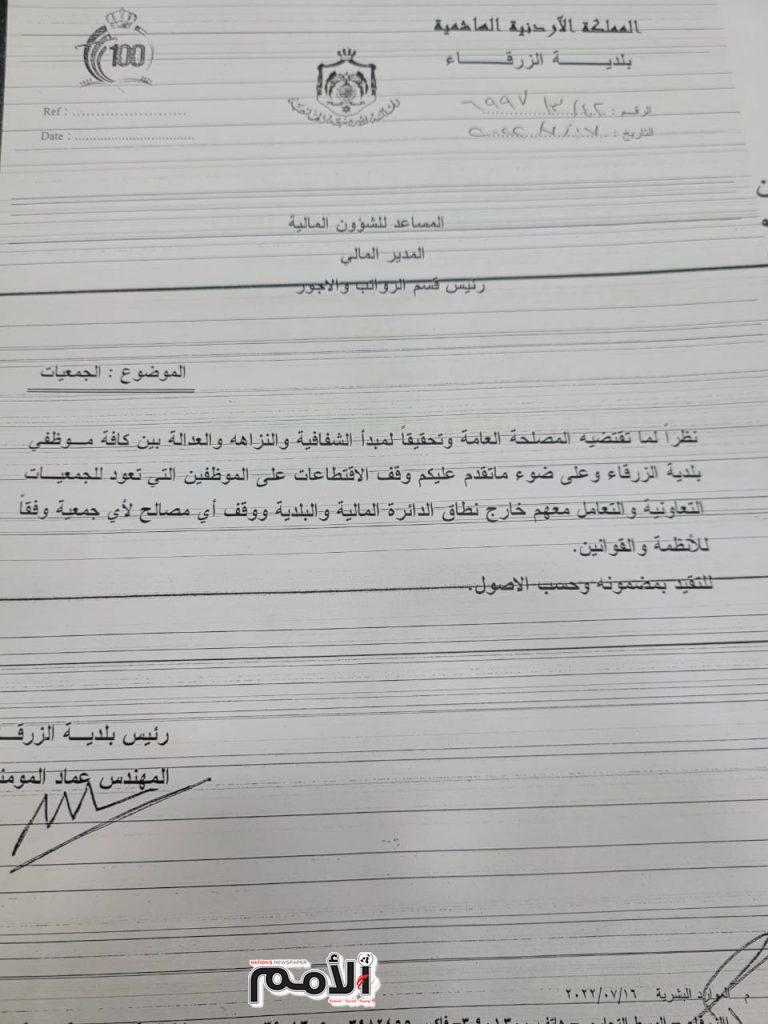 المملكة الأردنية الهاشمية
بلديــــة الزرقــــاء
100
Ref : ........................
الرقم :
Date : ..............................
التاريخ :
المساعد للشؤون المالية
المدير المالي
رئيس قسم الرواتب والاجور
الموضوع : الجمعيات
نظراً لما تقتضيه المصلحة العامة وتحقيقاً لمبدأ الشفافية والنزاهه والعدالة بين كافة مــوظفي
بلدية الزرقاء وعلى ضوء ماتقدم عليكم وقف الاقتطاعات على الموظفين التي تعود للجمعيــات
التعاونية والتعامل معهم خارج نطاق الدائرة المالية والبلدية ووقف أي مصالح لأي جمعية وفقاً
للأنظمة والقوانين.
للتقيد بمضمونه وحسب الاصول.
رئيس بلديــة الزرقـ
المهندس عماد المومنـ
NATION'S NEWSPAPER
الأمم
م الموارد البشرية ٢٠٢٢/٠٧/١٦